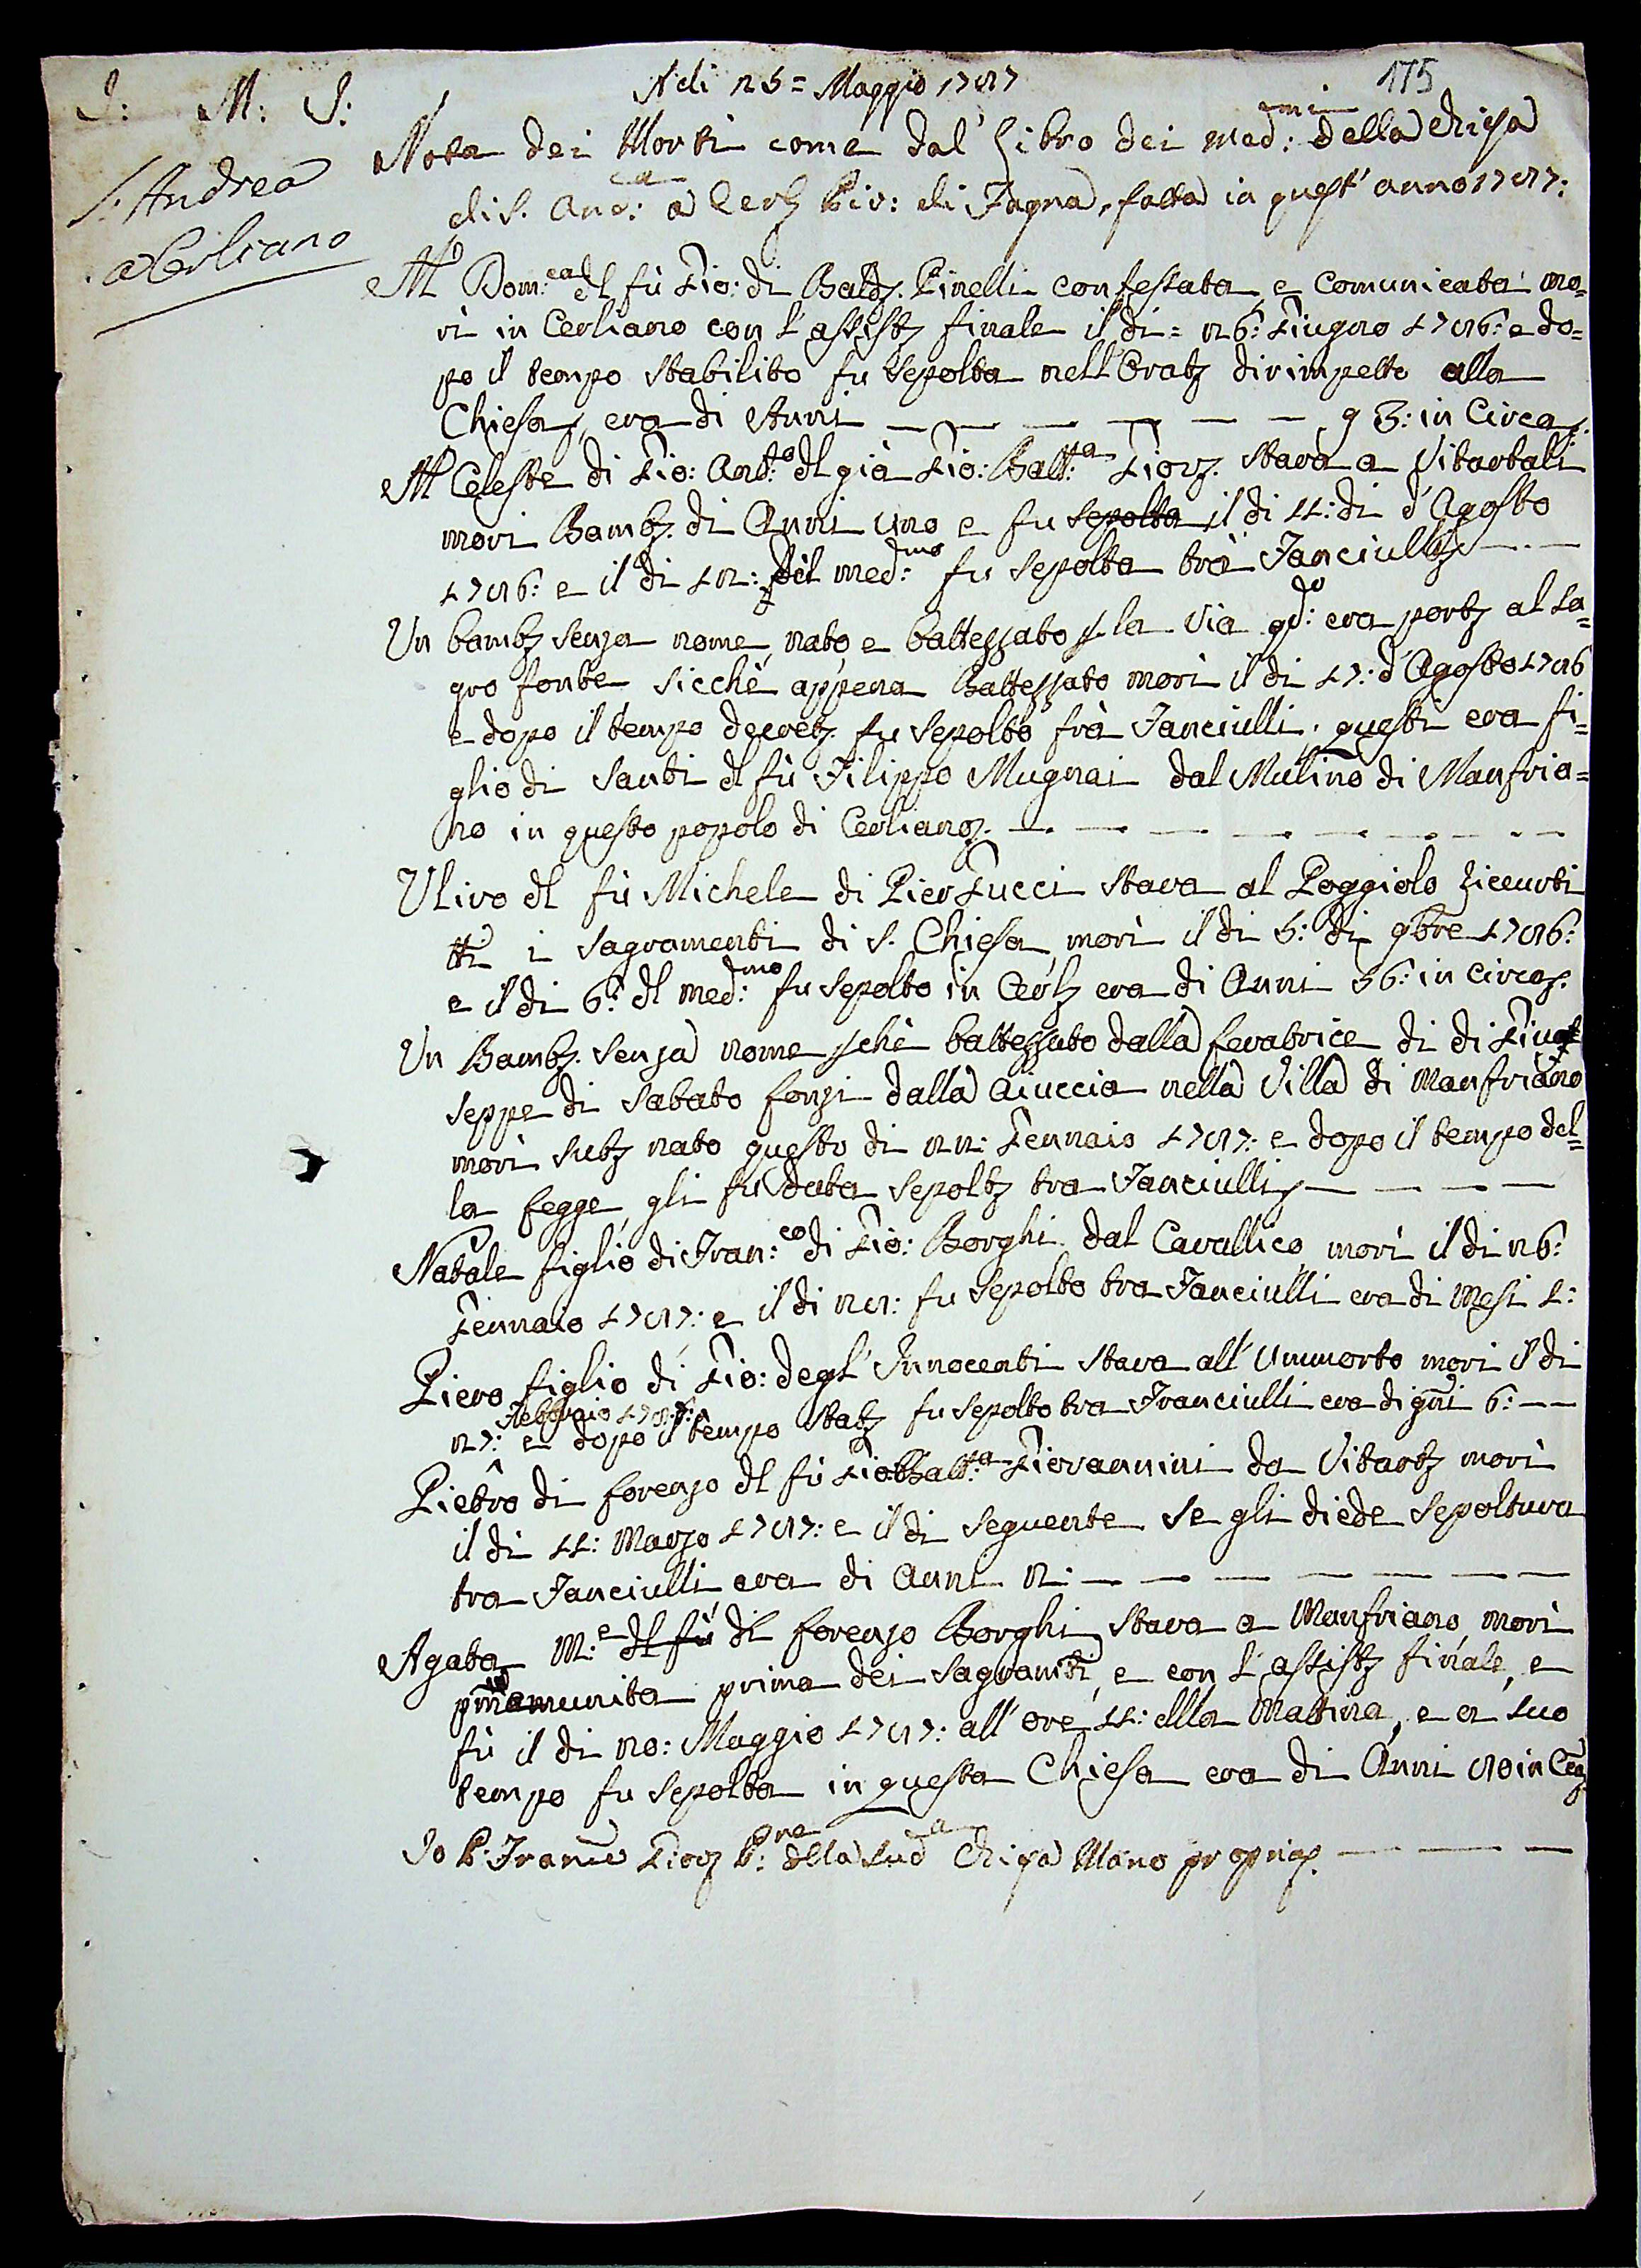 175
J: M: J:
A di 25= Maggio 1787
S: Andrea
a Cerliano
Nota dei Morti come dal' Libro dei med:mi della Chiesa
di S. And:a a Cerlz Piv: di Fagna, fatta in quest' anno 1787:
M Dom:ca dl fù Gio: di Baldz. Pinelli confessata, e Comunicata mo=
rì in Cerliano con l'assistz finale il dì= 26: Giugno 1786: e do=
po il tempo stabilito fu sepolta nell'Oratz dirimpetto alla
Chiesa, era di Anni — — — — — — 93: in Circa.
M Celeste di Gio: Ant:o dl già Gio: Batt:a Giorz. stava a Vitartali
morì Bambz. di Anni uno e fu sepolta il di 11: di d'Agosto
1786: e il di 12: del med:mo fu sepolta trà Fanciullz — . —
Un bambz senza nome, nato, e battezzato p la Via qd:o era portz al Sa=
gro fonte sicchè appena Battezzato morì il di 17: d'Agosto 1786
e dopo il tempo decretz. fu sepolto frà Fanciulli, questi era fi=
glio di Santi dl fù Filippo Mugnai dal Mulino di Manfria=
no in questo popolo di Cerlianoz. — . — — — — — . —
Ulivo dl fù Michele di Pier Lucci stava al Poggiolo ricevuti
tti i Sagramenti di S. Chiesa, morì il di 5: di 9bre 1786:
e il di 6: dl med:mo fu sepolto in Cerlz era di Anni 56: in circa.
Un Bambz. senza nome pchè battezzato dalla Levatrice di di Giu
seppe di Sabato Lonzi dalla Aiuccia nella Villa di Manfriano
morì subz nato questo di 22: Gennaio 1787: e dopo il tempo del=
la Legge, gli fù data sepoltz tra Fanciulli — — — —
Natale figlio di Fran:co di Gio: Borghi dal Cavallico morì il di 26:
Gennaio 1787: e il di 28: fu sepolto tra Fanciulli era di Mesi 1:
Piero figlio di Gio: degl' Innocenti stava all' Ummorto morì il di
Febbraio 1787:
27: e dopo il tempo stabz fu sepolto tra Franciulli era di gni 6: — —
Pietro di Lorenzo dl fù Gio Batt:a Giovannini da Vitartz morì
il di 11: Marzo 1787: e il di seguente se gli diede sepoltura
tra Fanciulli, era di Anni 2: — — — — — — —
Agata M:e dl fù di Lorenzo Borghi stava a Manfriano, morì
munita prima dei Sagramti, e con l'assistz finale, e
fù il di 20: Maggio 1787: all' ore 11: dlla Mattina, e a suo
tempo fu sepolta in questa Chiesa era di Anni 80 in Cca
Io P: Franc:o Giorz P:re della Sud:a Chiesa Mano propria. — — —